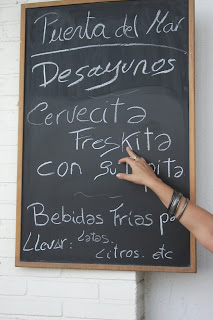 Puerta del Mar
Desayunos
Cervecita
Freskita
con su
Bebidas Frías pa
Llevar: Latas.
Litros. etc